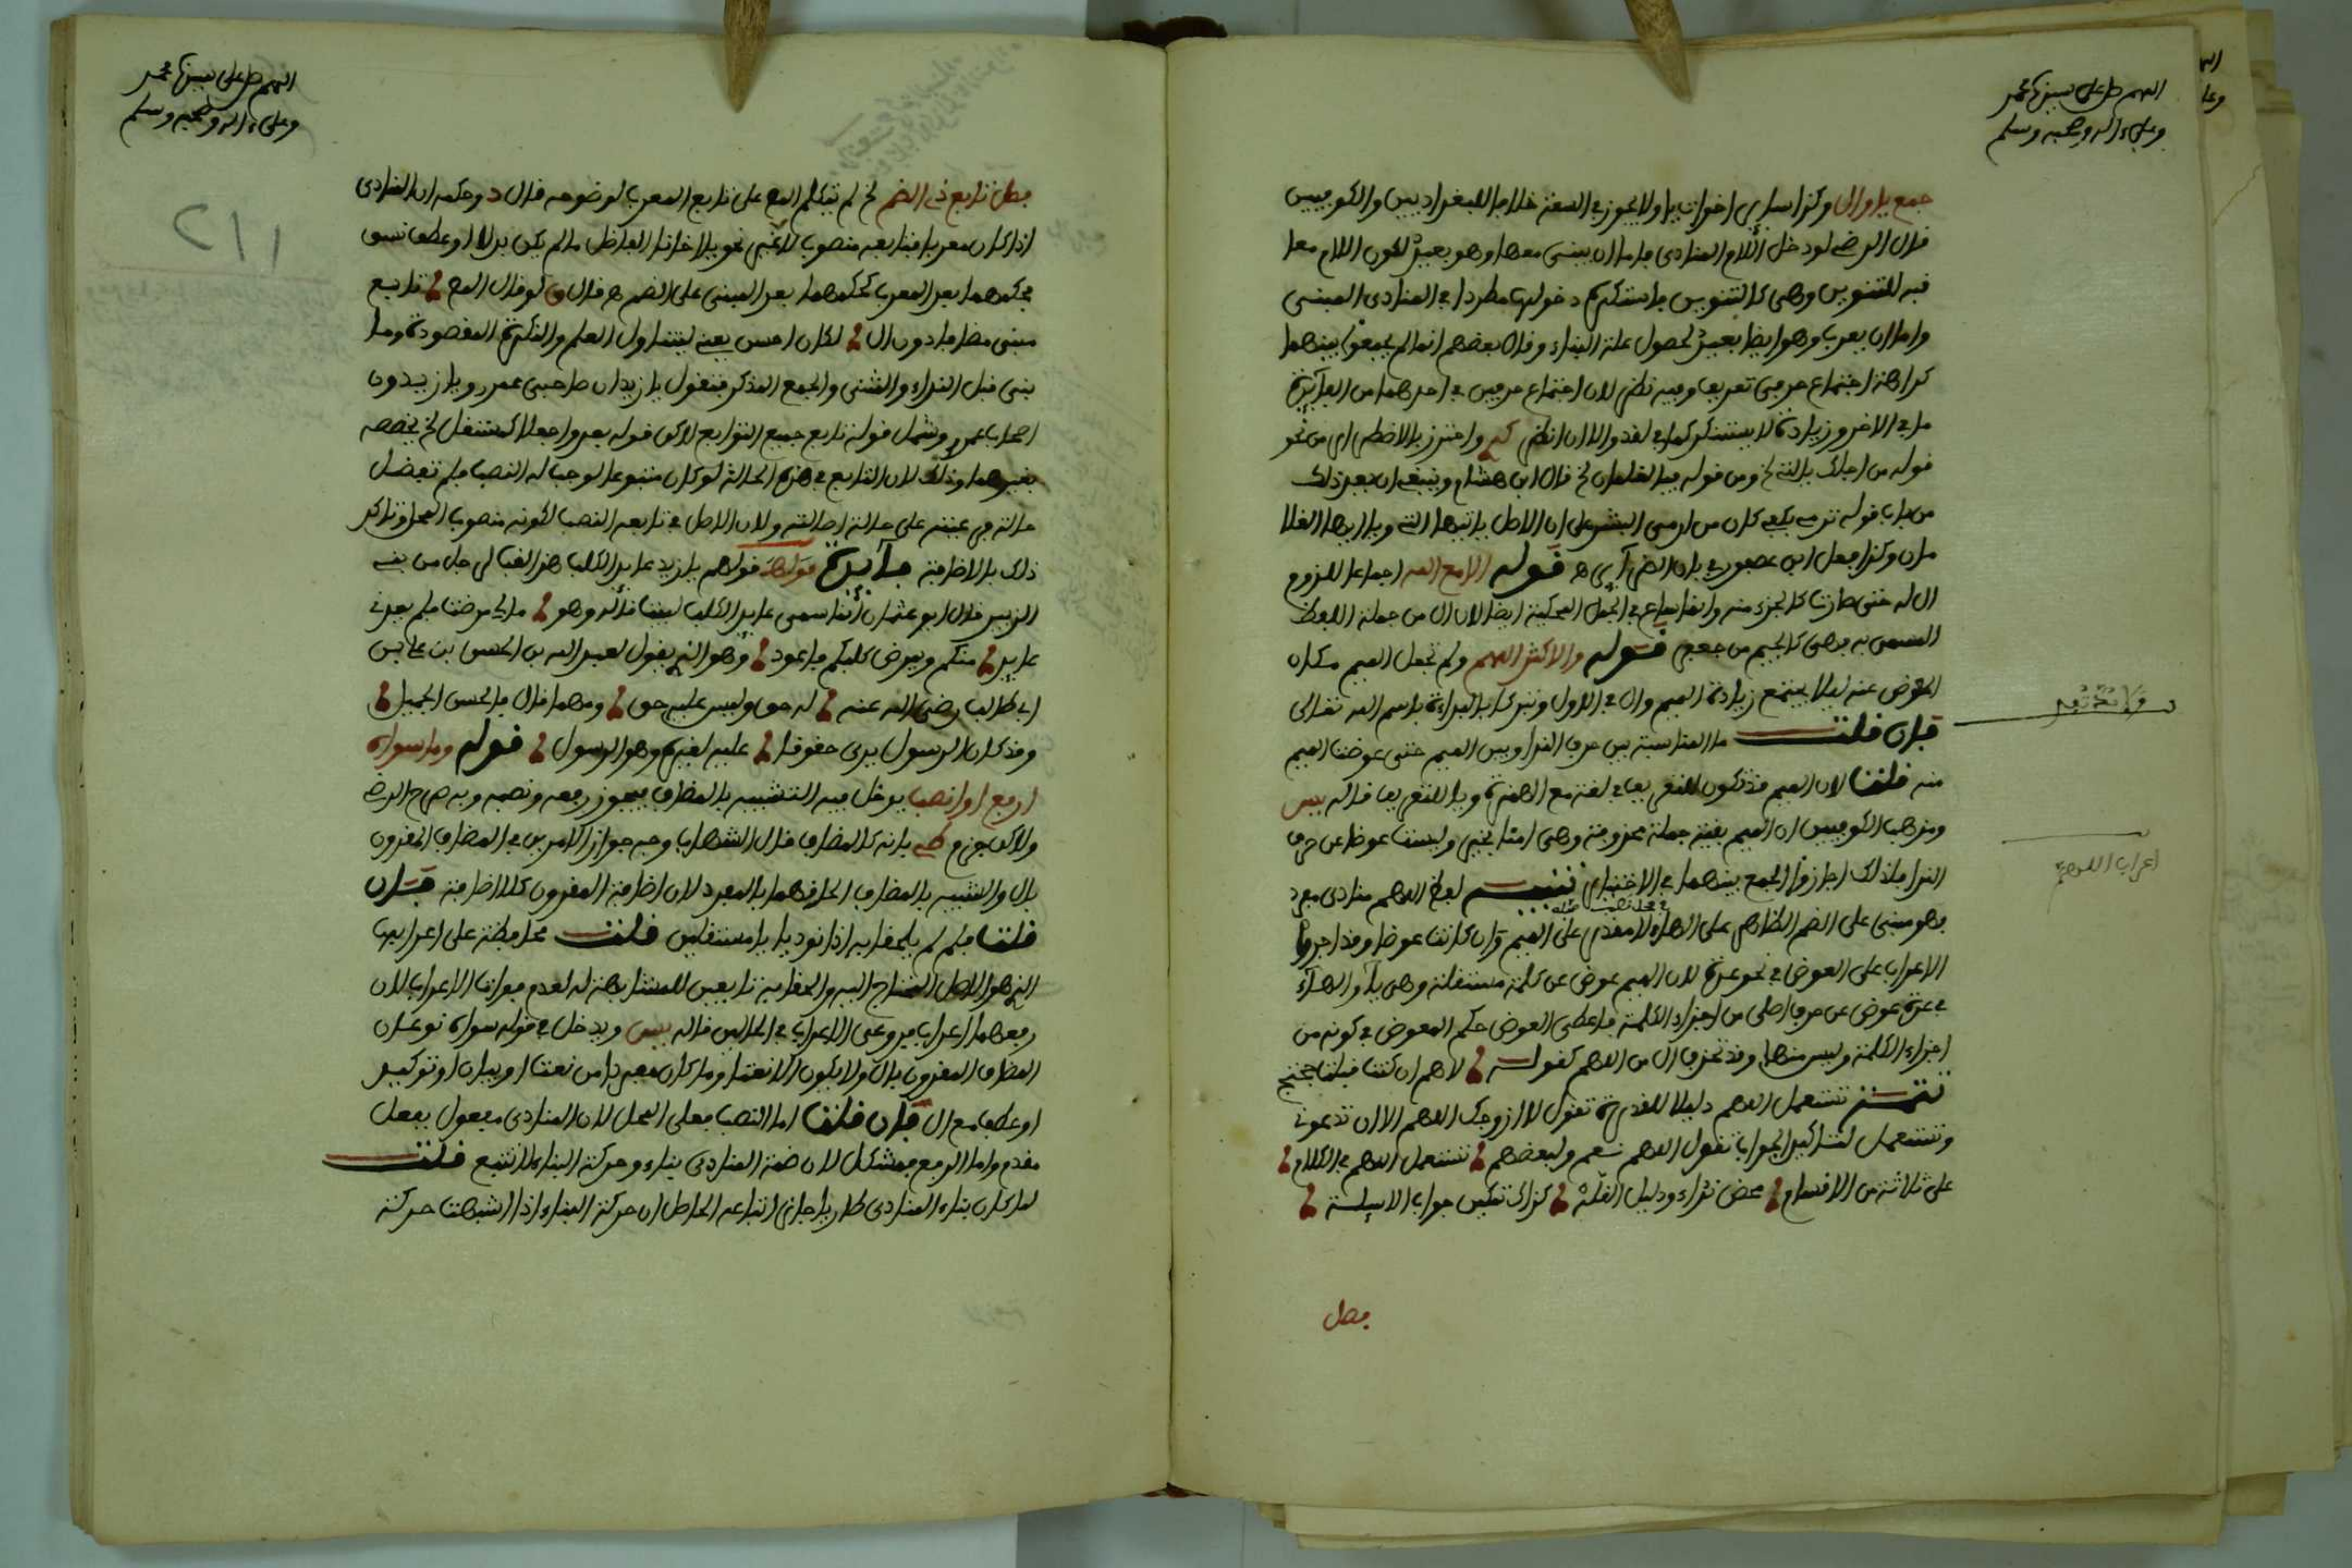 اللهم صل على سيدنا محمد
وعلى ءاله وصحبه وسلم
جمع يا وال وكذا سائر اخوات يا ولا يجوز في السعة خلافا للبغداديين والكوفيين
قال الرضي لو دخل اللام المنادى فاما ان يبنى معها وهو بعيد لكون اللام معا
فيه للتنوين وهي كالتنوين فاستكره دخولها مطردا في المنادى المبنى
واما ان يعرب وهو ايضا بعيد لحصول علة البناء وقال بعضهم انما لم يجمعوا بينهما
كراهة اجتماع حرفي تعريف وفيه نظر لان اجتماع حرفين في احدهما من الفائدة
ما في الاخر وزيادة لا يستنكر كما في لقد والا ان انظر واحترز بالاضطرار من نحو
قوله من اجلك يا التي لخ ومن قوله فيا الغلامان لخ قال ابن هشام وينبغي ان يعد ذلك
من باب قوله ان الاصل يا ايتها التي ويا ايها الغلا
مان وكذا فعل ابن عصفور في باب قوله الا مع الله اجماعا للزوم
ال له حتى صارت كالجزء منه في الجمل المحكية ايضا لان ال من جملة اللفظ
المسمى به فهي كالجيم من جعفر قوله والاكثر اللهم ولم تجعل الميم مكان
المعوض عنه ليلا يجتمع زيادة الميم وال في الاول وتبركا بالبداءة باسم الله تعالى
فان قلت ما المناسبة بين حرف النداء وبين الميم حتى عوضت الميم
منه قلنا لان الميم قد تكون للتعريف في لغة مع الهمزة ويا للتعريف قاله يس
ومذهب الكوفيين ان الميم بقية جملة محذوفة وهي امنا بخير وليست عوضا عن حرف
النداء فلذلك اجازوا الجمع بينهما في الاختيار تنبيه لفظ اللهم منادى مفرد
في محل نصب
فهو مبني على الضم الظاهر على الهاء لا مقدر على الميم وان كانت عوضا وقد اجروا
الاعراب على العوض في نحو عدة لان الميم عوض عن كلمة مستقلة وهي يا والهاء
في عدة عوض عن حرف اصلي من اجزاء الكلمة فاعطى العوض حكم المعوض في كونه من
اجزاء الكلمة وليس منها وقد تحذف ال من اللهم كقوله لاهم ان كنت قبلت حجتج
تتمة تستعمل اللهم دليلا للقدرة تقول لا ازورك اللهم الا ان تدعوني
وتستعمل لتاكيد الجواب تقول اللهم نعم ولبعضهم تستعمل اللهم في الكلام
على ثلاثة من الاقسام محض نداء ودليل القلة كذاك تمكين جواب الاسيلة
اعراب اللهم
فصل
اللهم صل على سيدنا محمد
وعلى ءاله وصحبه وسلم
211
فصل تابع ذي الضم لخ لم يتكلم المص على تابع المعرب لوضوحه قال د وحكمه ان المنادى
اذا كان معربا فتابعه منصوب لا غير نحو يا اخانا الفاضل ما لم يكن بدلا او عطف نسق
فحكمهما بعد المعرب كحكمهما بعد المبنى على الضم ه قال ق لو قال المص تابع
مبنى مضافا دون ال لكان احسن يعني ليتناول العلم والنكرة المقصودة وما
بنى قبل النداء والمثنى والجمع المذكر فتقول يا زيدان صاحبي عمرو ويا زيدون
اصحاب عمرو وشمل قوله تابع جميع التوابع لاكن قوله بعد واجعلا كمستقل لخ يخصصه
بغيرهما وذلك لان التابع في هذه الحالة لو كان متبوعا لوجب له النصب فلم تفضل
حالة فرعيته على حالة اصالته ولان الاصل في تابعه النصب لكونه منصوب المحل وتاكد
ذلك بالاضافة فائدة قولهم يا زيد عايد الكلب هذا لقب لرجل من بني
الزبير قال ابو عثمان انما سمي عايد الكلب لبيت قاله وهو ما لي مرضت فلم يعدني
عايد منكم ويمرض كلبكم فاعود وهو الذي يقول لعبد الله بن الحسن بن علي بن
ابي طالب رضي الله عنه له حق وليس عليه حق ومهما قال فالحسن الجميل
وقد كان الرسول يرى حقوقا عليه لغيره وهو الرسول قوله وما سواه
ارفع او انصب يدخل فيه الشبيه بالمضاف فيجوز رفعه ونصبه وبه صرح الرضي
ولاكن جزم بانه كالمضاف قال الشهاب وجه جواز الامرين في المضاف المقرون
بال والشبيه بالمضاف الحاقهما بالمفرد لان اضافة المقرون كلا اضافة فان
قلت فلم لم يلحقا به اذا نوديا مستقلين قلت محافظة على اعرابهما
الذي هو الاصل المحتاج اليه والحقا به تابعين للمشابهة له لعدم فوات الاعراب لان
رفعهما اعراب فروعي الاعراب في الحالين قاله يس ويدخل في قوله سواه نوعان
المضاف المقرون بال ولا يكون الا نعتا وما كان مفردا من نعت او بيان او توكيد
او عطف مع ال فان قلت اما النصب فعلى المحل لان المنادى مفعول بفعل
مقدم واما الرفع فمشكل لان ضمة المنادى بناء وحركة البناء لا تتبع قلت
لما كان بناء المنادى طاريا جاز اتباعه الحاصل ان حركة البناء اذا اشبهت حركة